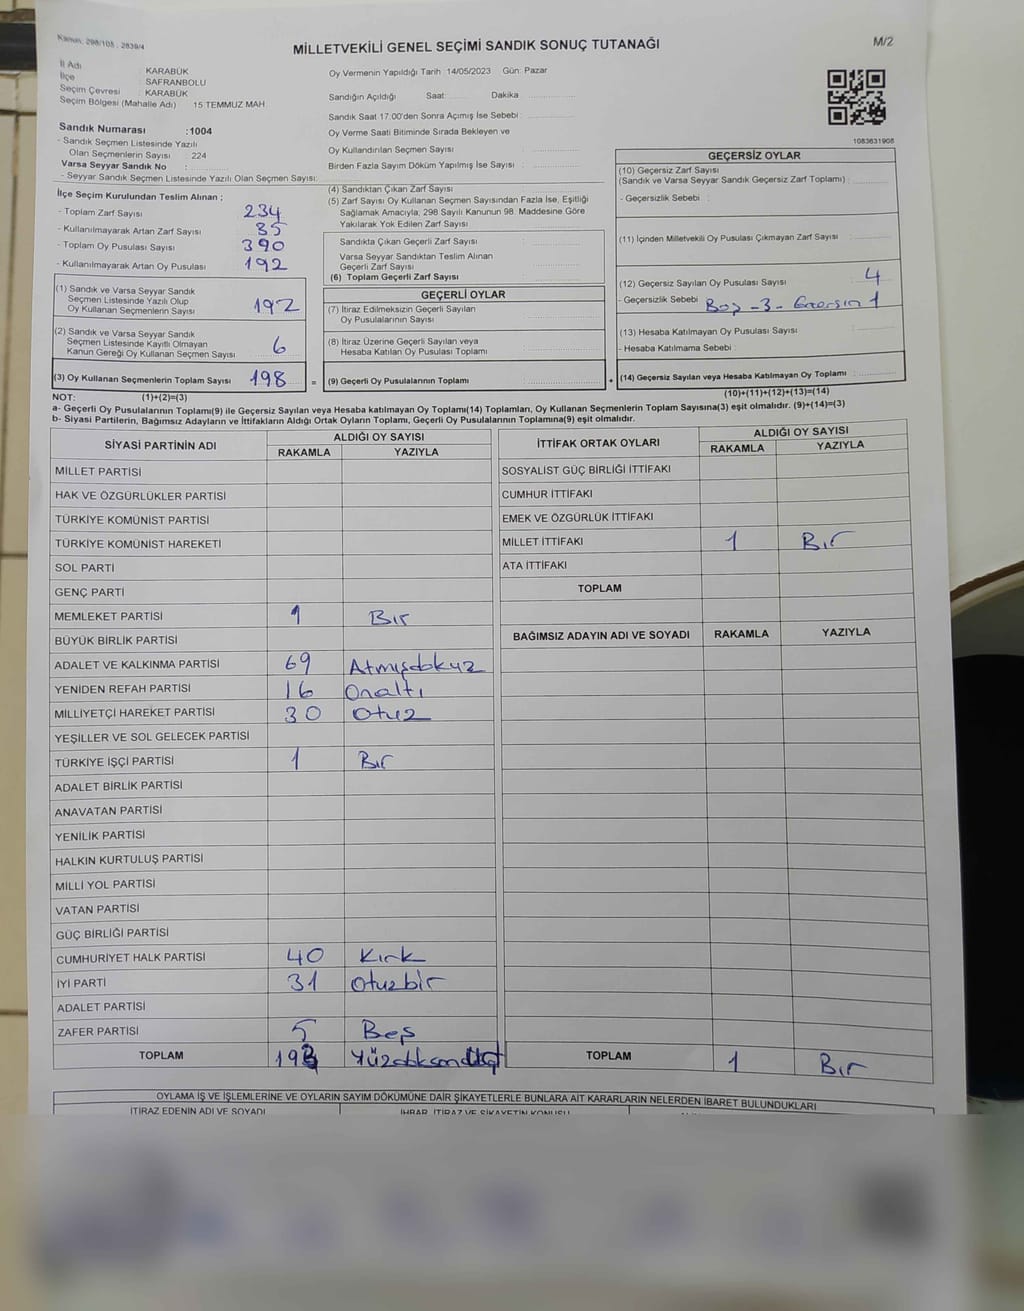 Kanun, 298/105 . 2839/4
MİLLETVEKİLİ GENEL SEÇİMİ SANDIK SONUÇ TUTANAĞI
M/2
İl Adı : KARABÜK
İlçe : SAFRANBOLU
Seçim Çevresi : KARABÜK
Seçim Bölgesi (Mahalle Adı) : 15 TEMMUZ MAH.
Sandık Numarası :1004
- Sandık Seçmen Listesinde Yazılı
Olan Seçmenlerin Sayısı : 224
Varsa Seyyar Sandık No :
- Seyyar Sandık Seçmen Listesinde Yazılı Olan Seçmen Sayısı:
Oy Vermenin Yapıldığı Tarih :14/05/2023 Gün: Pazar
Sandığın Açıldığı Saat: Dakika
Sandık Saat 17.00'den Sonra Açımış İse Sebebi :
Oy Verme Saati Bitiminde Sırada Bekleyen ve
Oy Kullandırılan Seçmen Sayısı :
Birden Fazla Sayım Döküm Yapılmış İse Sayısı :
1083631908
İlçe Seçim Kurulundan Teslim Alınan ;
- Toplam Zarf Sayısı : 234
- Kullanılmayarak Artan Zarf Sayısı : 85
- Toplam Oy Pusulası Sayısı : 390
- Kullanılmayarak Artan Oy Pusulası : 192
(1) Sandık ve Varsa Seyyar Sandık
Seçmen Listesinde Yazılı Olup
Oy Kullanan Seçmen Sayısı : 192
(2) Sandık ve Varsa Seyyar Sandık
Seçmen Listesinde Kayıtlı Olmayan
Kanun Gereği Oy Kullanan Seçmen Sayısı : 6
(3) Oy Kullanan Seçmenlerin Toplam Sayısı : 198 =
(4) Sandıktan Çıkan Zarf Sayısı :
(5) Zarf Sayısı Oy Kullanan Seçmen Sayısından Fazla İse, Eşitliği
Sağlamak Amacıyla, 298 Sayılı Kanunun 98. Maddesine Göre
Yakılarak Yok Edilen Zarf Sayısı :
Sandıkta Çıkan Geçerli Zarf Sayısı :
Varsa Seyyar Sandıktan Teslim Alınan
Geçerli Zarf Sayısı :
(6) Toplam Geçerli Zarf Sayısı :
GEÇERLİ OYLAR
(7) İtiraz Edilmeksizin Geçerli Sayılan
Oy Pusulalarının Sayısı :
(8) İtiraz Üzerine Geçerli Sayılan veya
Hesaba Katılan Oy Pusulası Toplamı :
(9) Geçerli Oy Pusulalarının Toplamı : +
GEÇERSİZ OYLAR
(10) Geçersiz Zarf Sayısı
(Sandık ve Varsa Seyyar Sandık Geçersiz Zarf Toplamı) :
- Geçersizlik Sebebi :
(11) İçinden Milletvekili Oy Pusulası Çıkmayan Zarf Sayısı :
(12) Geçersiz Sayılan Oy Pusulası Sayısı : 4
- Geçersizlik Sebebi : Boş - 3 - 1
(13) Hesaba Katılmayan Oy Pusulası Sayısı :
- Hesaba Katılmama Sebebi :
(14) Geçersiz Sayılan veya Hesaba Katılmayan Oy Toplamı :
NOT: (1)+(2)=(3) (10)+(11)+(12)+(13)=(14)
a- Geçerli Oy Pusulalarının Toplamı(9) ile Geçersiz Sayılan veya Hesaba katılmayan Oy Toplamı(14) Toplamları, Oy Kullanan Seçmenlerin Toplam Sayısına(3) eşit olmalıdır. (9)+(14)=(3)
b- Siyasi Partilerin, Bağımsız Adayların ve İttifakların Aldığı Ortak Oyların Toplamı, Geçerli Oy Pusulalarının Toplamına(9) eşit olmalıdır.
SİYASİ PARTİNİN ADI ALDIĞI OY SAYISI
RAKAMLA YAZIYLA
MİLLET PARTİSİ
HAK VE ÖZGÜRLÜKLER PARTİSİ
TÜRKİYE KOMÜNİST PARTİSİ
TÜRKİYE KOMÜNİST HAREKETİ
SOL PARTİ
GENÇ PARTİ
MEMLEKET PARTİSİ 1 Bir
BÜYÜK BİRLİK PARTİSİ
ADALET VE KALKINMA PARTİSİ 69 Atmışdokuz
YENİDEN REFAH PARTİSİ 16 Onaltı
MİLLİYETÇİ HAREKET PARTİSİ 30 Otuz
YEŞİLLER VE SOL GELECEK PARTİSİ
TÜRKİYE İŞÇİ PARTİSİ 1 Bir
ADALET BİRLİK PARTİSİ
ANAVATAN PARTİSİ
YENİLİK PARTİSİ
HALKIN KURTULUŞ PARTİSİ
MİLLİ YOL PARTİSİ
VATAN PARTİSİ
GÜÇ BİRLİĞİ PARTİSİ
CUMHURİYET HALK PARTİSİ 40 Kırk
İYİ PARTİ 31 Otuzbir
ADALET PARTİSİ
ZAFER PARTİSİ 5 Beş
TOPLAM 193
İTTİFAK ORTAK OYLARI ALDIĞI OY SAYISI
RAKAMLA YAZIYLA
SOSYALIST GÜÇ BİRLİĞİ İTTİFAKI
CUMHUR İTTİFAKI
EMEK VE ÖZGÜRLÜK İTTİFAKI
MİLLET İTTİFAKI 1 Bir
ATA İTTİFAKI
TOPLAM
BAĞIMSIZ ADAYIN ADI VE SOYADI RAKAMLA YAZIYLA
TOPLAM 1 Bir
OYLAMA İŞ VE İŞLEMLERİNE VE OYLARIN SAYIM DÖKÜMÜNE DAİR ŞİKAYETLERLE BUNLARA AİT KARARLARIN NELERDEN İBARET BULUNDUKLARI
İTİRAZ EDENİN ADI VE SOYADI İHBAR, İTİRAZ VE ŞİKAYETİN KONUSU